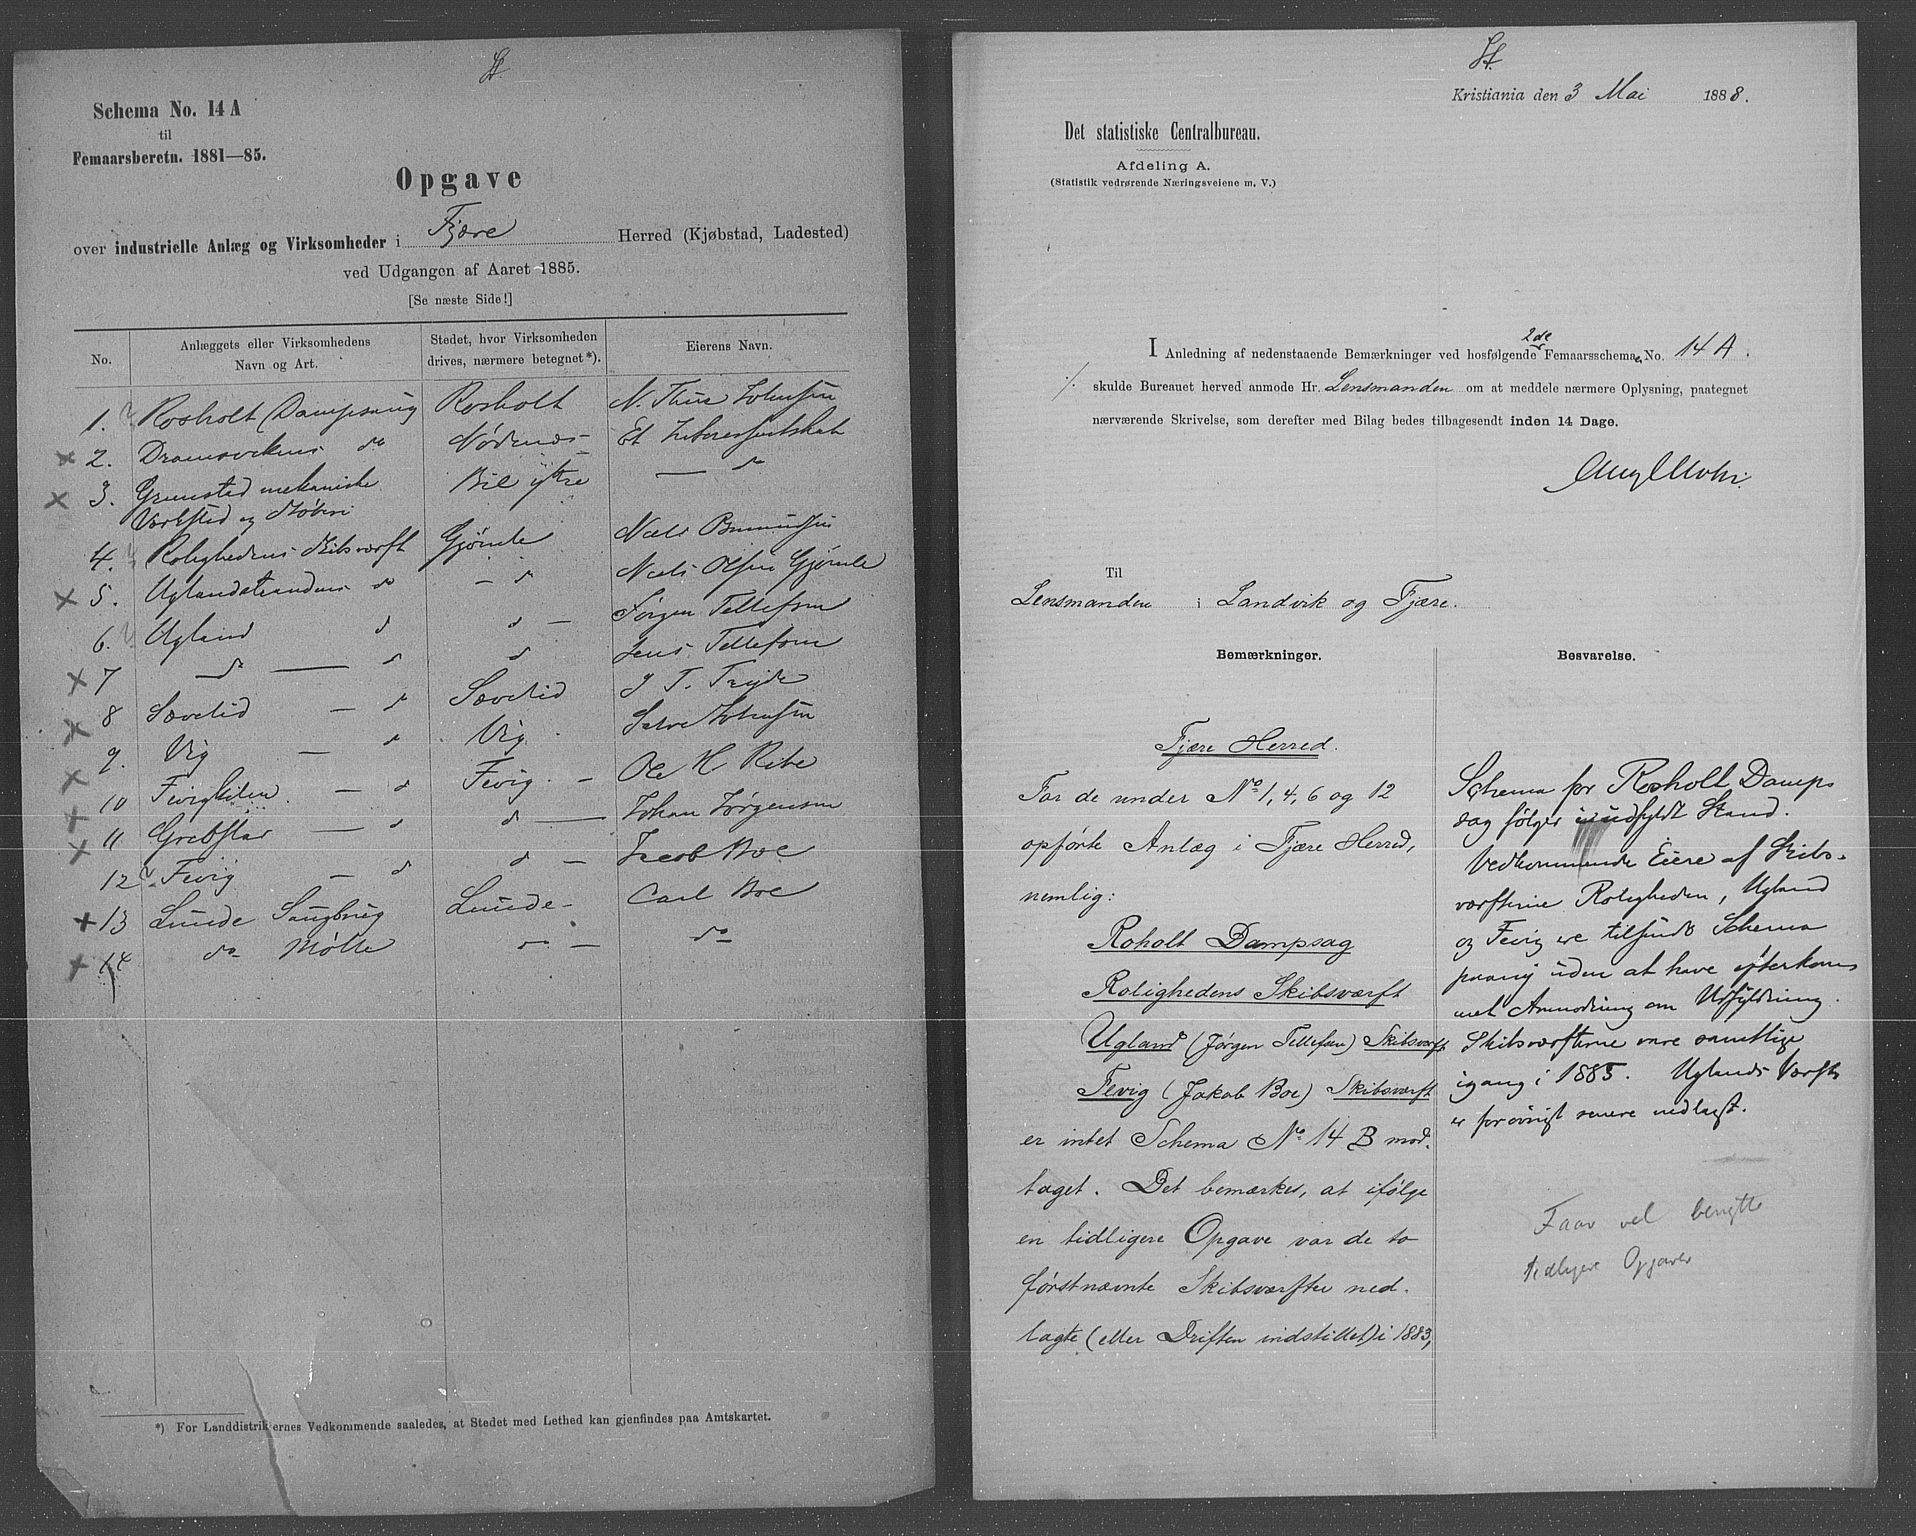 St.
Schema No. 14 A
til
Femaarsberetn. 1881—85.
Opgave
over industrielle Anlæg og Virksomheder i Fjære Herred (Kjøbstad, Ladested)
ved Udgangen af Aaret 1885.
[Se næste Side!]
No. Anlæggets eller Virksomhedens Navn og Art. Stedet, hvor Virksomheden drives, nærmere betegnet*). Eierens Navn.
1. Rosholt Dampsaug Rosholt N. Thue Johnsen
× 2. Dromsvikens do Nødenæs Et Interessentskab
× 3. Grimstad mekaniske Bie østre — do
Værksted og Støberi
4. Rolighedens Skibsværft Gjømle Niels
× 5. Uglandstrandens do — do Niels Olsen Gjømle
6. Ugland do do — Jørgen Tellefsen
× 7 do — do do Jens Tellefsen
× 8 Sævelid — do Sævelid J T.
× 9. Vig — do Vig Salve Johnsen
× 10 Fevigkilen — do Fevig — Ole H
× 11 Grebstad — do do — Johan Jørgensen
12 Fevig — do do — Jacob Boe
× 13 Lunde Saugbrug Lunde Carl Boe
× 14 do Mølle do — do
*) For Landdistrikternes Vedkommende saaledes, at Stedet med Lethed kan gjenfindes paa Amtskartet.
St.
Kristiania den 3 Mai 1888.
Det statistiske Centralbureau.
Afdeling A.
(Statistik vedrørende Næringsveiene m. V.)
2de
I Anledning af nedenstaaende Bemærkninger ved hosfølgende Femaarsschema No. 14 A.
./. skulde Bureauet herved anmode Hr. Lensmanden om at meddele nærmere Oplysning, paategnet
nærværende Skrivelse, som derefter med Bilag bedes tilbagesendt inden 14 Dage.
Til
Lensmanden i Landvik og Fjære.
Bemærkninger.
Fjære Herred.
For de under No 1, 4, 6 og 12
opførte Anlæg i Fjære Herred,
nemlig:
Roholt Dampsag
Rolighedens Skibsværft
Ugland (Jørgen Tellefsen) Skibsværft
Fevig (Jakob Boe) Skibsværft
er intet Schema No. 14 B mod-
taget. Det bemærkes, at ifølge
en tidligere Opgave var de to
førstnævnte Skibsværfter ned-
lagte (eller Driften indstillet) i 1883,
Besvarelse.
Schema for Rosholt Damps
sag følger i udfyldt Stand.
Vedkommende Eiere af Skibs-
værfterne Roligheden, Ugland
og Fevig ere tilsendt Schema
paany uden at have efterkom-
met Anmodning om Udfyldning.
Skibsværfterne vare samtlige
igang i 1885. Uglands Værft
er forøvrigt senere nedlagt.
Faar vel benytte
tidligere Opgaver